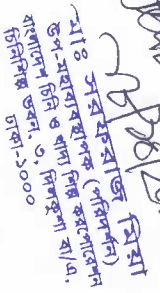 মোঃ সরফরাজ মিয়া
উপ মহাব্যবস্থাপক (পরিদর্শন)
বাংলাদেশ চিনি ও খাদ্য শিল্প করপোরেশন
চিনিশিল্প ভবন, ৩, দিলকুশা বা/এ.
ঢাকা-১০০০